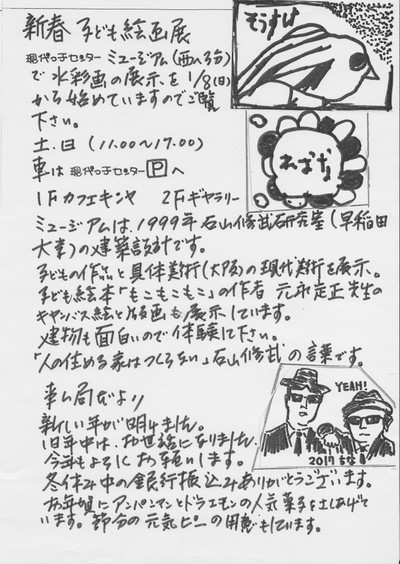 新春 子ども絵画展
現代っ子センター ミュージアム(西へ3分)
で 水彩画の展示を 1/8(日)
から始めていますのでご覧
下さい。
土.日 (11.00〜17.00)
車は 現代っ子センター P へ
1Fカフェキンヤ 2Fギャラリー
ミュージアムは、1999年 石山修武研究室(早稲田
大学)の建築設計です。
子どもの作品と具体美術(大阪)の現代美術を展示。
子ども絵本「もこもこもこ」の作者 元永定正先生の
キャンバス絵と版画も展示しています。
建物も面白いので体験に下さい。
「人の住める家はつくらない」石山修武 の言葉です。
事ム局だより
新しい年が明けました。
旧年中は、お世話になりました。
今年もよろしくお願いします。
冬休み中の銀行振込みありがとうございます。
お年賀にアンパンマンとドラエモンの人気菓子をさしあげて
います。節分の元気ピーの用意もしています。
そうすけ
YEAH!
2017